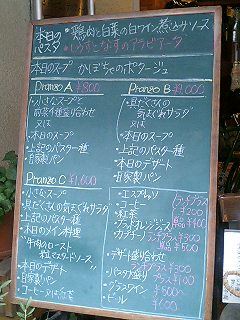 本日のパスタ
・鶏肉と白菜の白ワイン煮込みソース
・しらすとなすのアラビアータ
本日のスープ かぼちゃのポタージュ
Pranzo A ¥800
・小さなスープと
前菜4種盛り合わせ
又は
・本日のスープ
・上記のパスタ一種
・自家製パン
Pranzo B ¥1,000
・具だくさんの
気まぐれサラダ
又は
・本日のスープ
・上記のパスタ一種
・本日のデザート
・自家製パン
Pranzo C ¥1,600
・小さなスープ
・具だくさんの気まぐれサラダ
・上記のパスタ一種
・本日のメイン料理
牛肉のロースト
粒マスタードソース
・本日のデザート
・自家製パン
・コーヒー又は紅茶
・エスプレッソ
・コーヒー
・紅茶
ランチプラス
¥200
・ブラッドオレンジジュース
・カプチーノ
ランチプラス¥300
・デザート盛り合わせ
ランチプラス¥300
・パスタ大盛り
・グラスワイン ¥500
・ビール ¥600